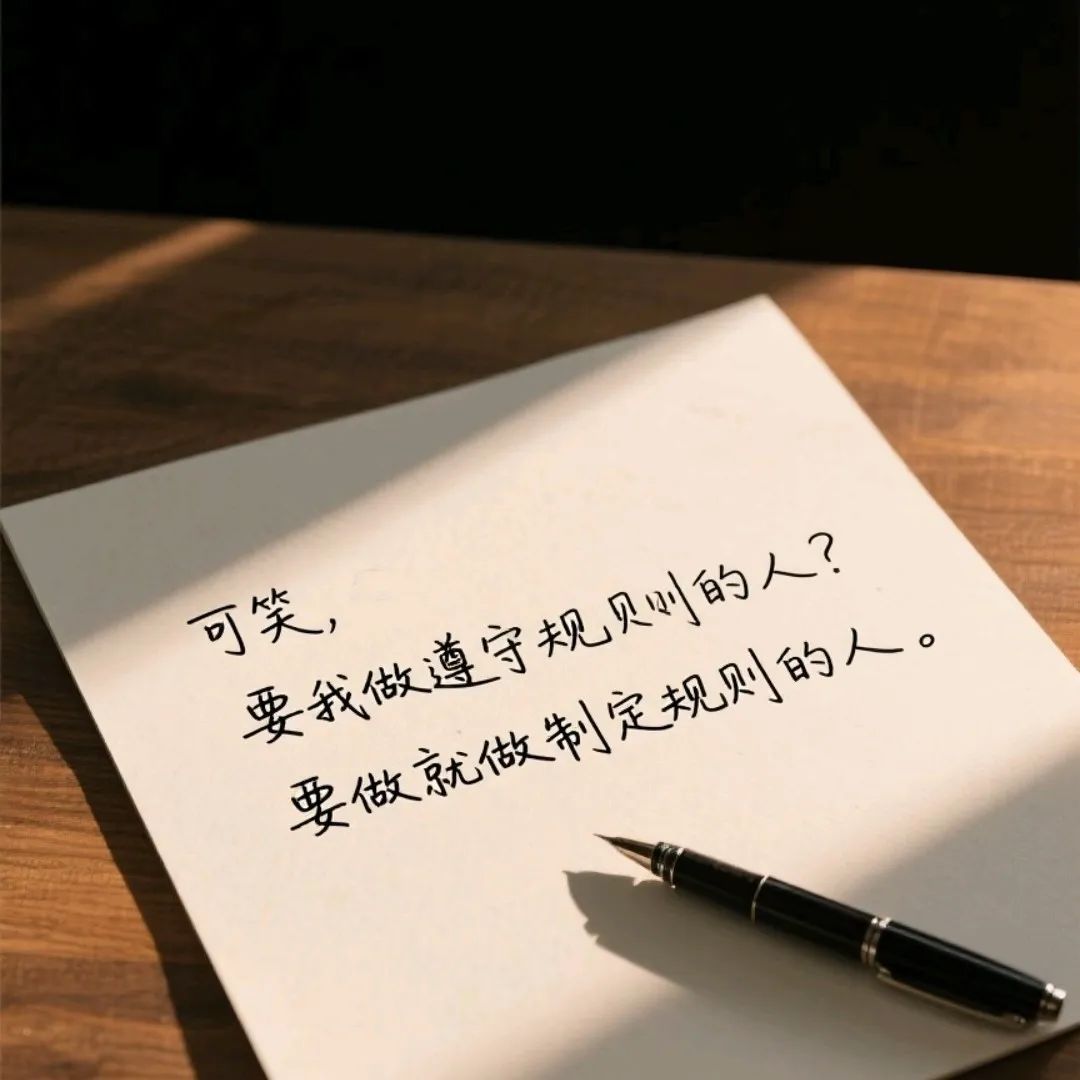 可笑，
要我做遵守规则的人？
要做就做制定规则的人。